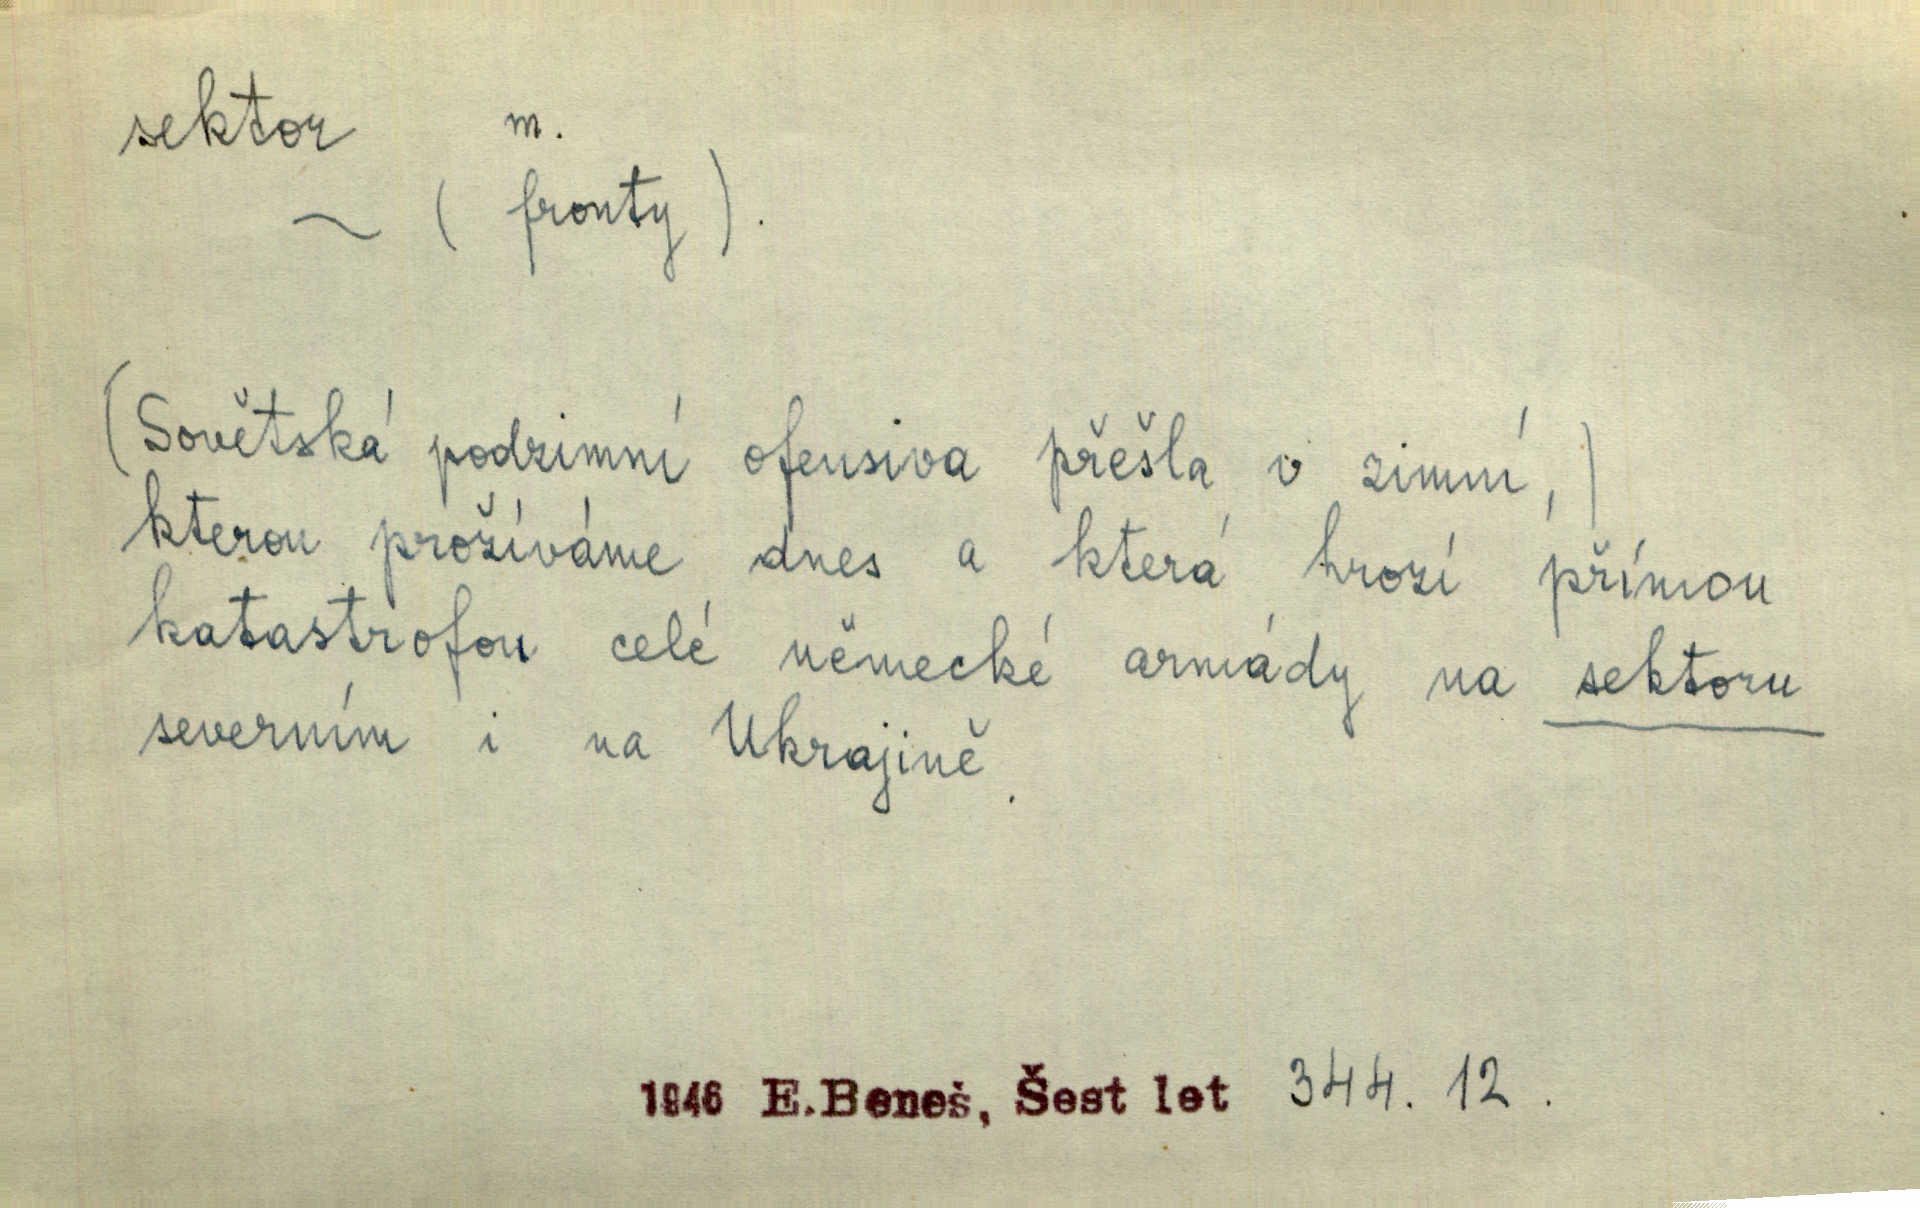 sektor m.
~ (fronty).
(Sovětská podzimní ofensiva přešla v zimní,)
kterou prožíváme dnes a která hrozí přímou
katastrofou celé německé armády na sektoru
severním i na Ukrajině.
1946 E.Beneš, Šest let 344. 12.